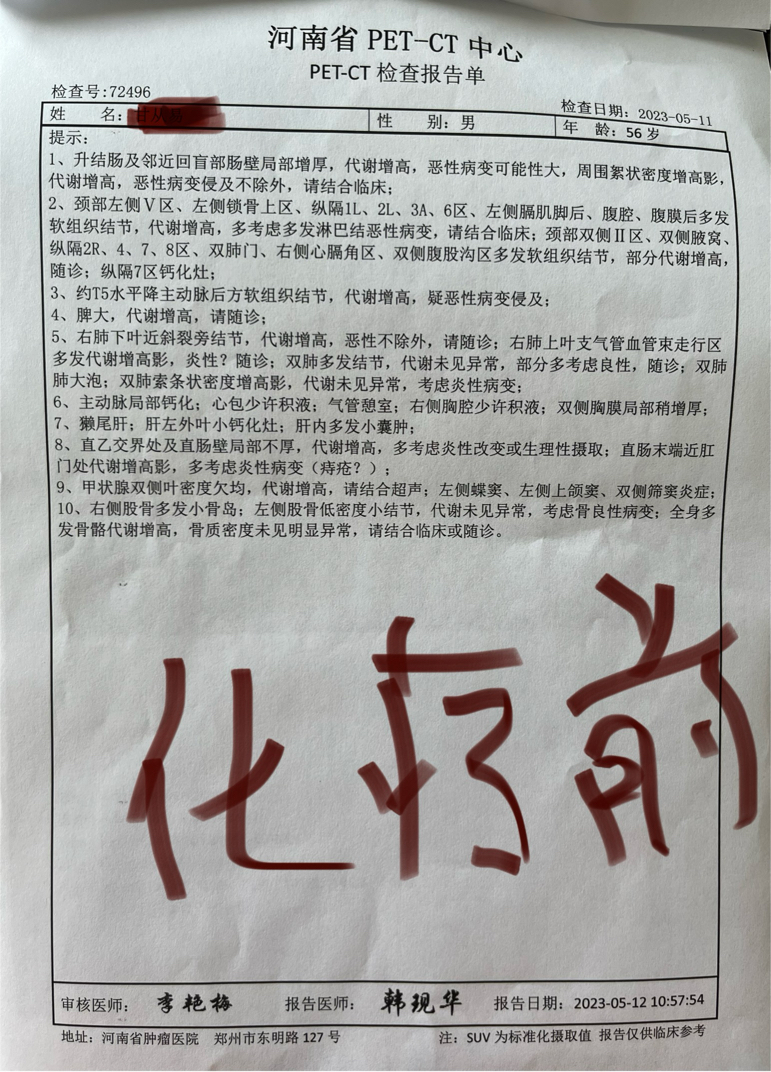 河南省 PET-CT 中心
PET-CT 检查报告单
检查号:72496
检查日期: 2023-05-11
姓 名:
性 别: 男
年 龄: 56 岁
提示:
1、升结肠及邻近回盲部肠壁局部增厚，代谢增高，恶性病变可能性大，周围絮状密度增高影，
代谢增高，恶性病变侵及不除外，请结合临床；
2、颈部左侧Ⅴ区、左侧锁骨上区、纵隔1L、2L、3A、6区、左侧膈肌脚后、腹腔、腹膜后多发
软组织结节，代谢增高，多考虑多发淋巴结恶性病变，请结合临床；颈部双侧Ⅱ区、双侧腋窝、
纵隔2R、4、7、8区、双肺门、右侧心膈角区、双侧腹股沟区多发软组织结节，部分代谢增高，
随诊；纵隔7区钙化灶；
3、约T5水平降主动脉后方软组织结节，代谢增高，疑恶性病变侵及；
4、脾大，代谢增高，请随诊；
5、右肺下叶近斜裂旁结节，代谢增高，恶性不除外，请随诊；右肺上叶支气管血管束走行区
多发代谢增高影，炎性？随诊；双肺多发结节，代谢未见异常，部分多考虑良性，随诊；双肺
肺大泡；双肺索条状密度增高影，代谢未见异常，考虑炎性病变；
6、主动脉局部钙化；心包少许积液；气管憩室；右侧胸腔少许积液；双侧胸膜局部稍增厚；
7、獭尾肝；肝左外叶小钙化灶；肝内多发小囊肿；
8、直乙交界处及直肠壁局部不厚，代谢增高，多考虑炎性改变或生理性摄取；直肠末端近肛
门处代谢增高影，多考虑炎性病变（痔疮？）；
9、甲状腺双侧叶密度欠均，代谢增高，请结合超声；左侧蝶窦、左侧上颌窦、双侧筛窦炎症；
10、右侧股骨多发小骨岛；左侧股骨低密度小结节，代谢未见异常，考虑骨良性病变；全身多
发骨骼代谢增高，骨质密度未见明显异常，请结合临床或随诊。
化疗前
审核医师: 李艳梅 报告医师: 韩现华 报告日期: 2023-05-12 10:57:54
地址: 河南省肿瘤医院 郑州市东明路 127 号 注: SUV 为标准化摄取值 报告仅供临床参考